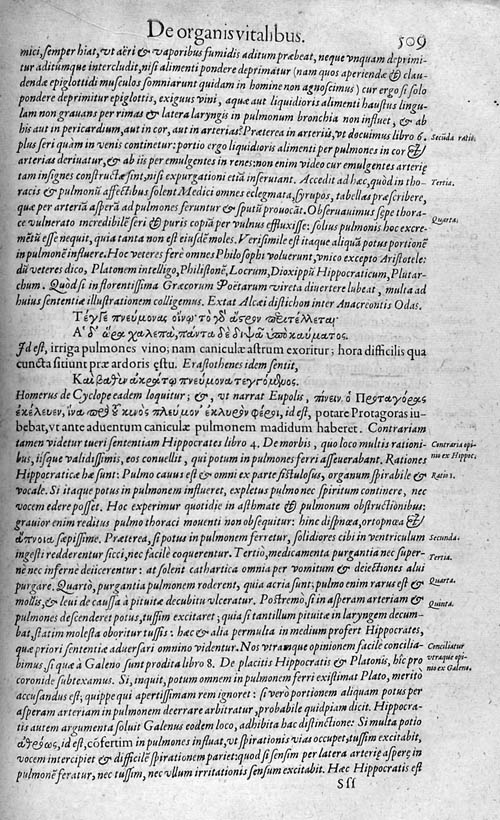 De organis vitalibus. 509
mici, semper hiat, vt aëri & vaporibus fumidis aditum præbeat, neque vnquam deprimi-
tur aditumque intercludit, nisi alimenti pondere deprimatur (nam quos aperiendæ & clau-
dendæ epiglottidi musculos somniarunt quidam in homine non agnoscimus) cur ergo si solo
pondere deprimitur epiglottis, exiguus vini, aquæ aut liquidioris alimenti haustus lingu-
lam non grauans per rimas & latera laryngis in pulmonum bronchia non influet, & ab
his aut in pericardium, aut in cor, aut in arterias? Præterea in arteriis, vt docuimus libro 6. Secūda ratio.
plus seri quàm in venis continetur: portio ergo liquidioris alimenti per pulmones in cor &
arterias deriuatur, & ab iis per emulgentes in renes: non enim video cur emulgentes arteriæ
tam insignes constructæ sint, nisi expurgationi etiā inserutant. Accedit ad hæc, quòd in tho- Tertia.
racis & pulmonū affectibus solent Medici omnes eclegmata, syrupos, tabellas præscribere,
quæ per arteriā asperā ad pulmones feruntur & sputū prouocāt. Obseruauimus sepe thora- Quarta.
ce vulnerato incredibilē seri & puris copiā per vulnus effluxisse: solius pulmonis hoc excre-
mētū esse nequit, quia tanta non est eiusdē moles. Verisimile est itaque aliquā potus portionē
in pulmonē influere. Hoc veteres ferè omnes Philosophi voluerunt, vnico excepto Aristotele:
dū veteres dico, Platonem intelligo, Philistonē, Locrum, Dioxippū Hippocraticum, Plutar-
chum. Quòd si in florentissima Græcorum Poëtarum vireta diuertere lubeat, multa ad
huius sententiæ illustrationem colligemus. Extat Alcæi distichon inter Anacreontis Odas.
Τέγγε πνεύμονας οἴνῳ· τὸ γὸ ἄστρον περιτέλλεται·
Α᾽ δ᾽ ὥρα χαλεπὰ, πάντα δὲ διψᾷ ὑπὸ καύματος.
Id est, irriga pulmones vino, nam caniculæ astrum exoritur; hora difficilis qua
cuncta sitiunt præ ardoris æstu. Erastothenes idem sentit,
Καὶ βαθὺν ἀκρήτῳ πνεύμονα τεγγόμενος.
Homerus de Cyclope eadem loquitur; &, vt narrat Eupolis, πίνειν ὁ Πρωταγόρας
ἐκέλευεν, ἵνα πρὸ τοῦ κυνὸς πλεύμον᾽ ἔκλυρον φέρῃ, id est, potare Protagoras iu-
bebat, vt ante aduentum caniculæ pulmonem madidum haberet. Contrariam
tamen videntur tueri sententiam Hippocrates libro 4. De morbis, quo loco multis rationi- Contraria opi-
bus, iisque validissimis, eos conuellit, qui potum in pulmones ferri asseuerabant. Rationes nio ex Hippoc.
Hippocraticæ hæ sunt: Pulmo cauus est & omni ex parte fistulosus, organum spirabile & Ratio 1.
vocale. Si itaque potus in pulmonem influeret, expletus pulmo nec spiritum continere, nec
vocem edere posset. Hoc experimur quotidie in asthmate & pulmonum obstructionibus:
grauior enim reditus pulmo thoraci mouenti non obsequitur: hinc dispnœa, ortopnœa &
ἄπνοια sæpissimè. Præterea, si potus in pulmonem ferretur, solidiores cibi in ventriculum Secunda.
ingesti redderentur sicci, nec facilè coquerentur. Tertiò, medicamenta purgantia nec super- Tertia.
nè nec infernè deiicerentur: at solent cathartica omnia per vomitum & deiectiones alui
purgare. Quartò, purgantia pulmonem roderent, quia acria sunt: pulmo enim rarus est & Quarta.
mollis, & leui de caussa à pituitæ decubitu vlceratur. Postremò, si in asperam arteriam & Quinta.
pulmones descenderet potus, tussim excitaret; quia si tantillum pituitæ in laryngem decum-
bat, statim molesta oboritur tussis: hæc & alia permulta in medium profert Hippocrates,
quæ priori sententiæ aduersari omnino videntur. Nos vtranque opinionem facilè concilia- Conciliatur
bimus, si quæ à Galeno sunt prodita libro 8. De placitis Hippocratis & Platonis, hîc pro vtraque opi-
coronide subtexamus. Si, inquit, potum omnem in pulmonem ferri existimat Plato, meritò nio ex Galeno.
accusandus est; quippe qui apertissimam rem ignoret: si verò portionem aliquam potus per
asperam arteriam in pulmonem deerrare arbitratur, probabile quidpiam dicit. Hippocra-
tis autem argumenta soluit Galenus eodem loco, adhibita hac distinctione: Si multa potio
ἀθρόως, id est, cōfertim in pulmones influat, vt spirationis vias occupet, tussim excitabit,
vocem intercipiet & difficilē spirationem pariet: quod si sensim per latera arteriæ asperæ in
pulmonē feratur, nec tussim, nec vllum irritationis sensum excitabit. Hæc Hippocratis est
Sſſ